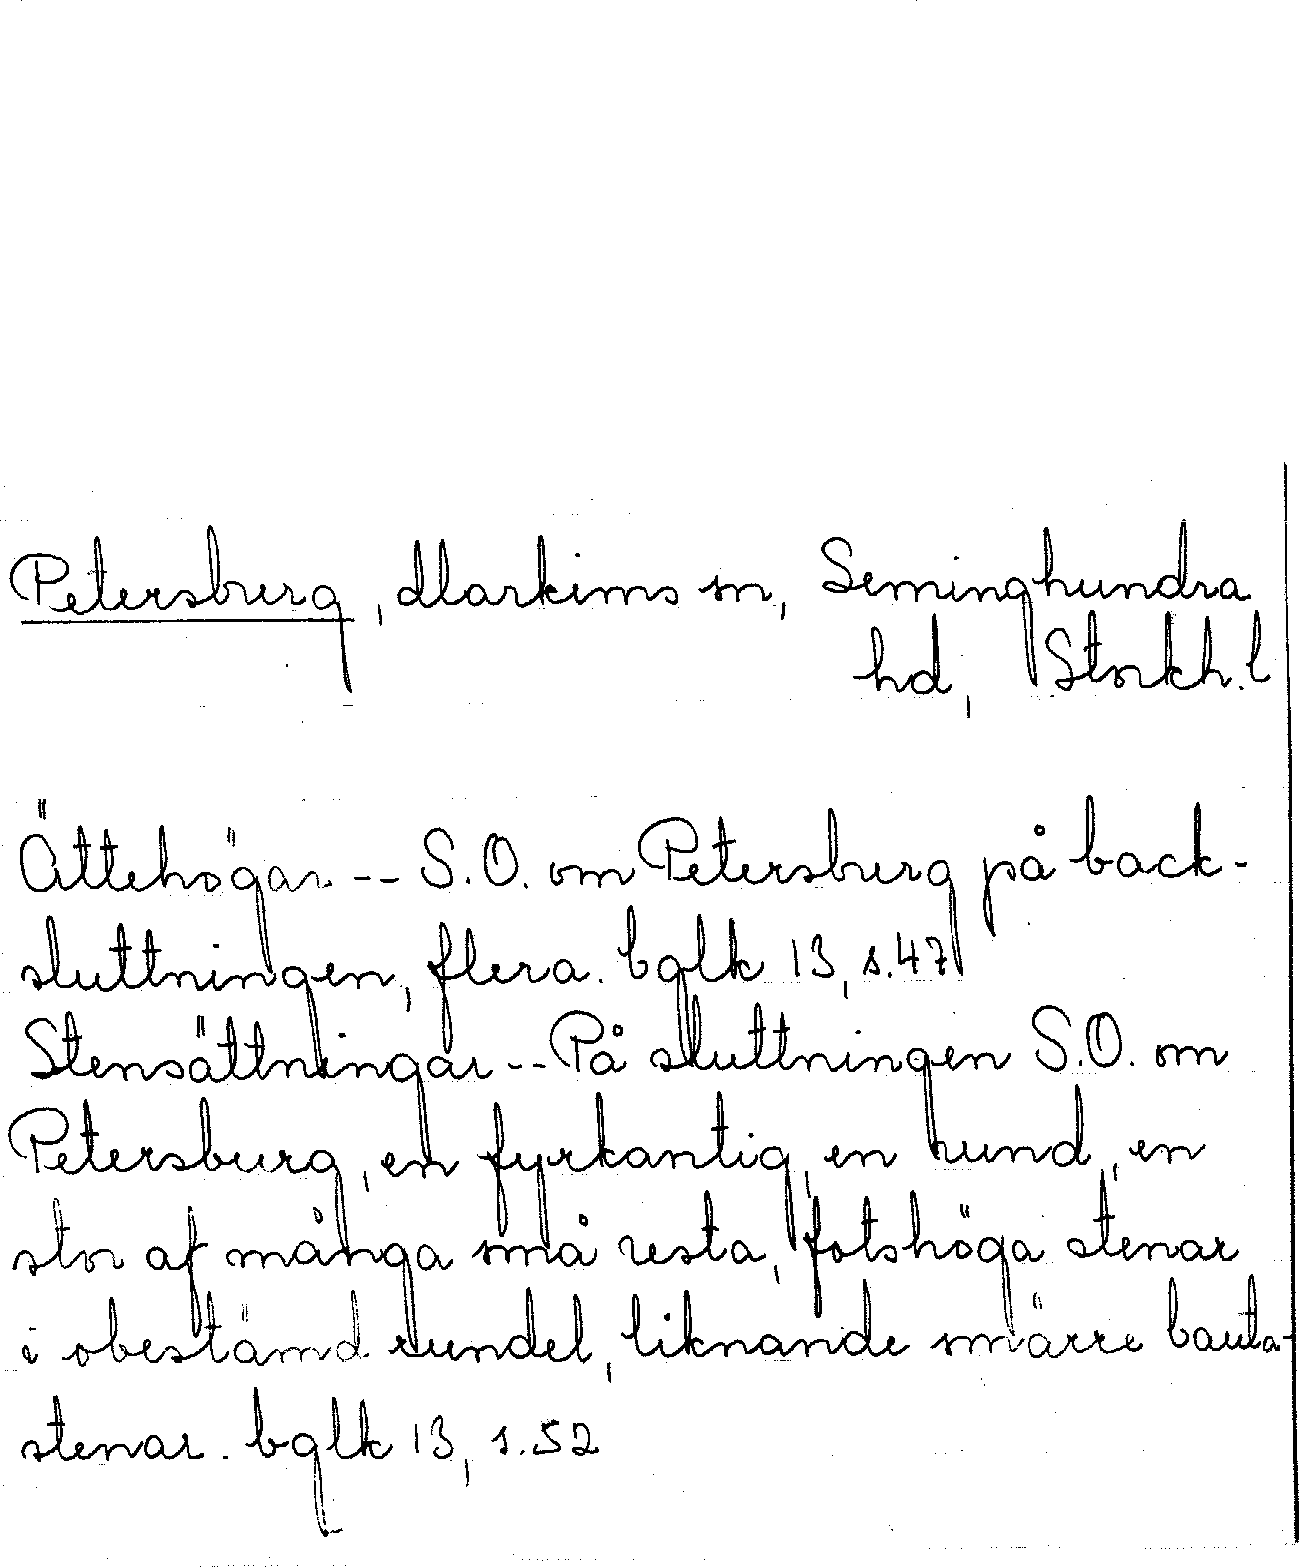 Petersburg, Markims sn, Seminghundra
hd, Stockh. l
Ättehögar -- S.O. om Petersburg på back-
sluttningen, flera. bglk 13, s.47
Stensättningar -- På sluttningen S.O. om
Petersburg, en fyrkantig, en rund, en
stor af många små resta, fotshöga stenar
i obestämd rundel, liknande smärre bauta-
stenar. bglk 13, s.52